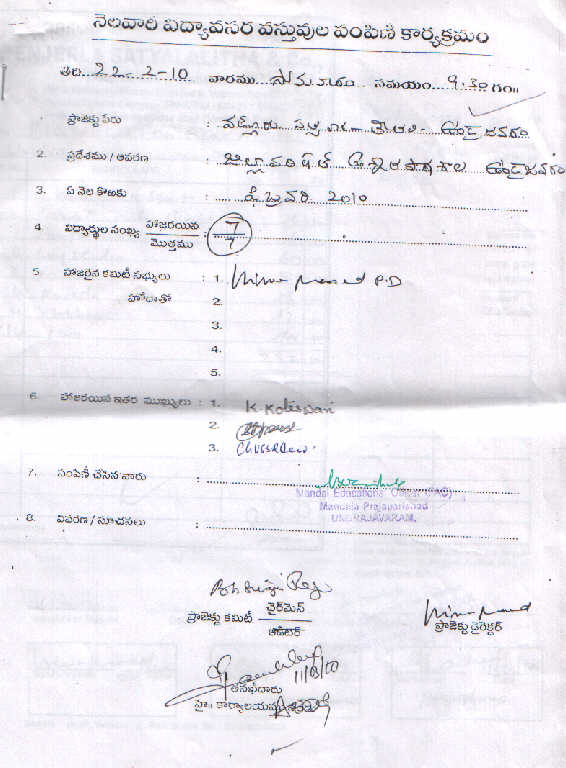 నెలవారి విద్యావసర వస్తువుల పంపిణి కార్యక్రమం
తేది 22-2-10 వారము సోమవారం సమయం 9.30 గం॥
ప్రాజెక్టు పేరు : ఉండ్రాజవరం
2. ప్రదేశము / ఆవరణ : జిల్లా పరిషత్ ఉన్నత పాఠశాల ఉండ్రాజవరం
3. ఏ నెల కొఱకు : ఫిబ్రవరి 2010
4. విద్యార్థుల సంఖ్య హాజరయిన / మొత్తము : 7 / 7
5. హాజరైన కమిటీ సభ్యులు : 1. P.D
హోదాతో 2.
3.
4.
5.
6. హాజరయిన ఇతర ముఖ్యులు : 1. K.
2.
3.
7. పంపిణీ చేసిన వారు :
Mandal Educational Officer (FAC)
Mandala Prajaparishad
UNDRAJAVARAM.
8. వివరణ / సూచనలు :
ప్రాజెక్టు కమిటీ చైర్‌మెన్ / ఆడిటర్
ప్రాజెక్టు డైరెక్టర్
11/03/10
తనిఖీదారు
హై॥ కార్యాలయము